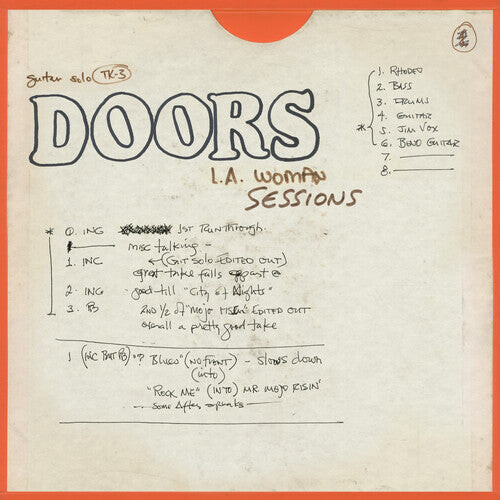 guitar solo TK-3
DOORS
L.A. WOMAN
SESSIONS
1. RHODES
2. BASS
3. DRUMS
4. GUITAR
* 5. JIM VOX
6. BEND GUITAR
7.
8.
* 0. INC 1ST RUNTHROUGH.
misc talking -
1. INC ← (GIT SOLO EDITED OUT)
great take falls apart @
2. INC good till "City of Nights"
3. PB 2ND 1/2 of "MOJO RISIN" EDITED OUT
overall a pretty good take
1 (INC BUT PB) "? Blues" (NO FRONT) - SLOWS down
(into)
"ROCK ME" (INTO) MR MOJO RISIN'
- Some After